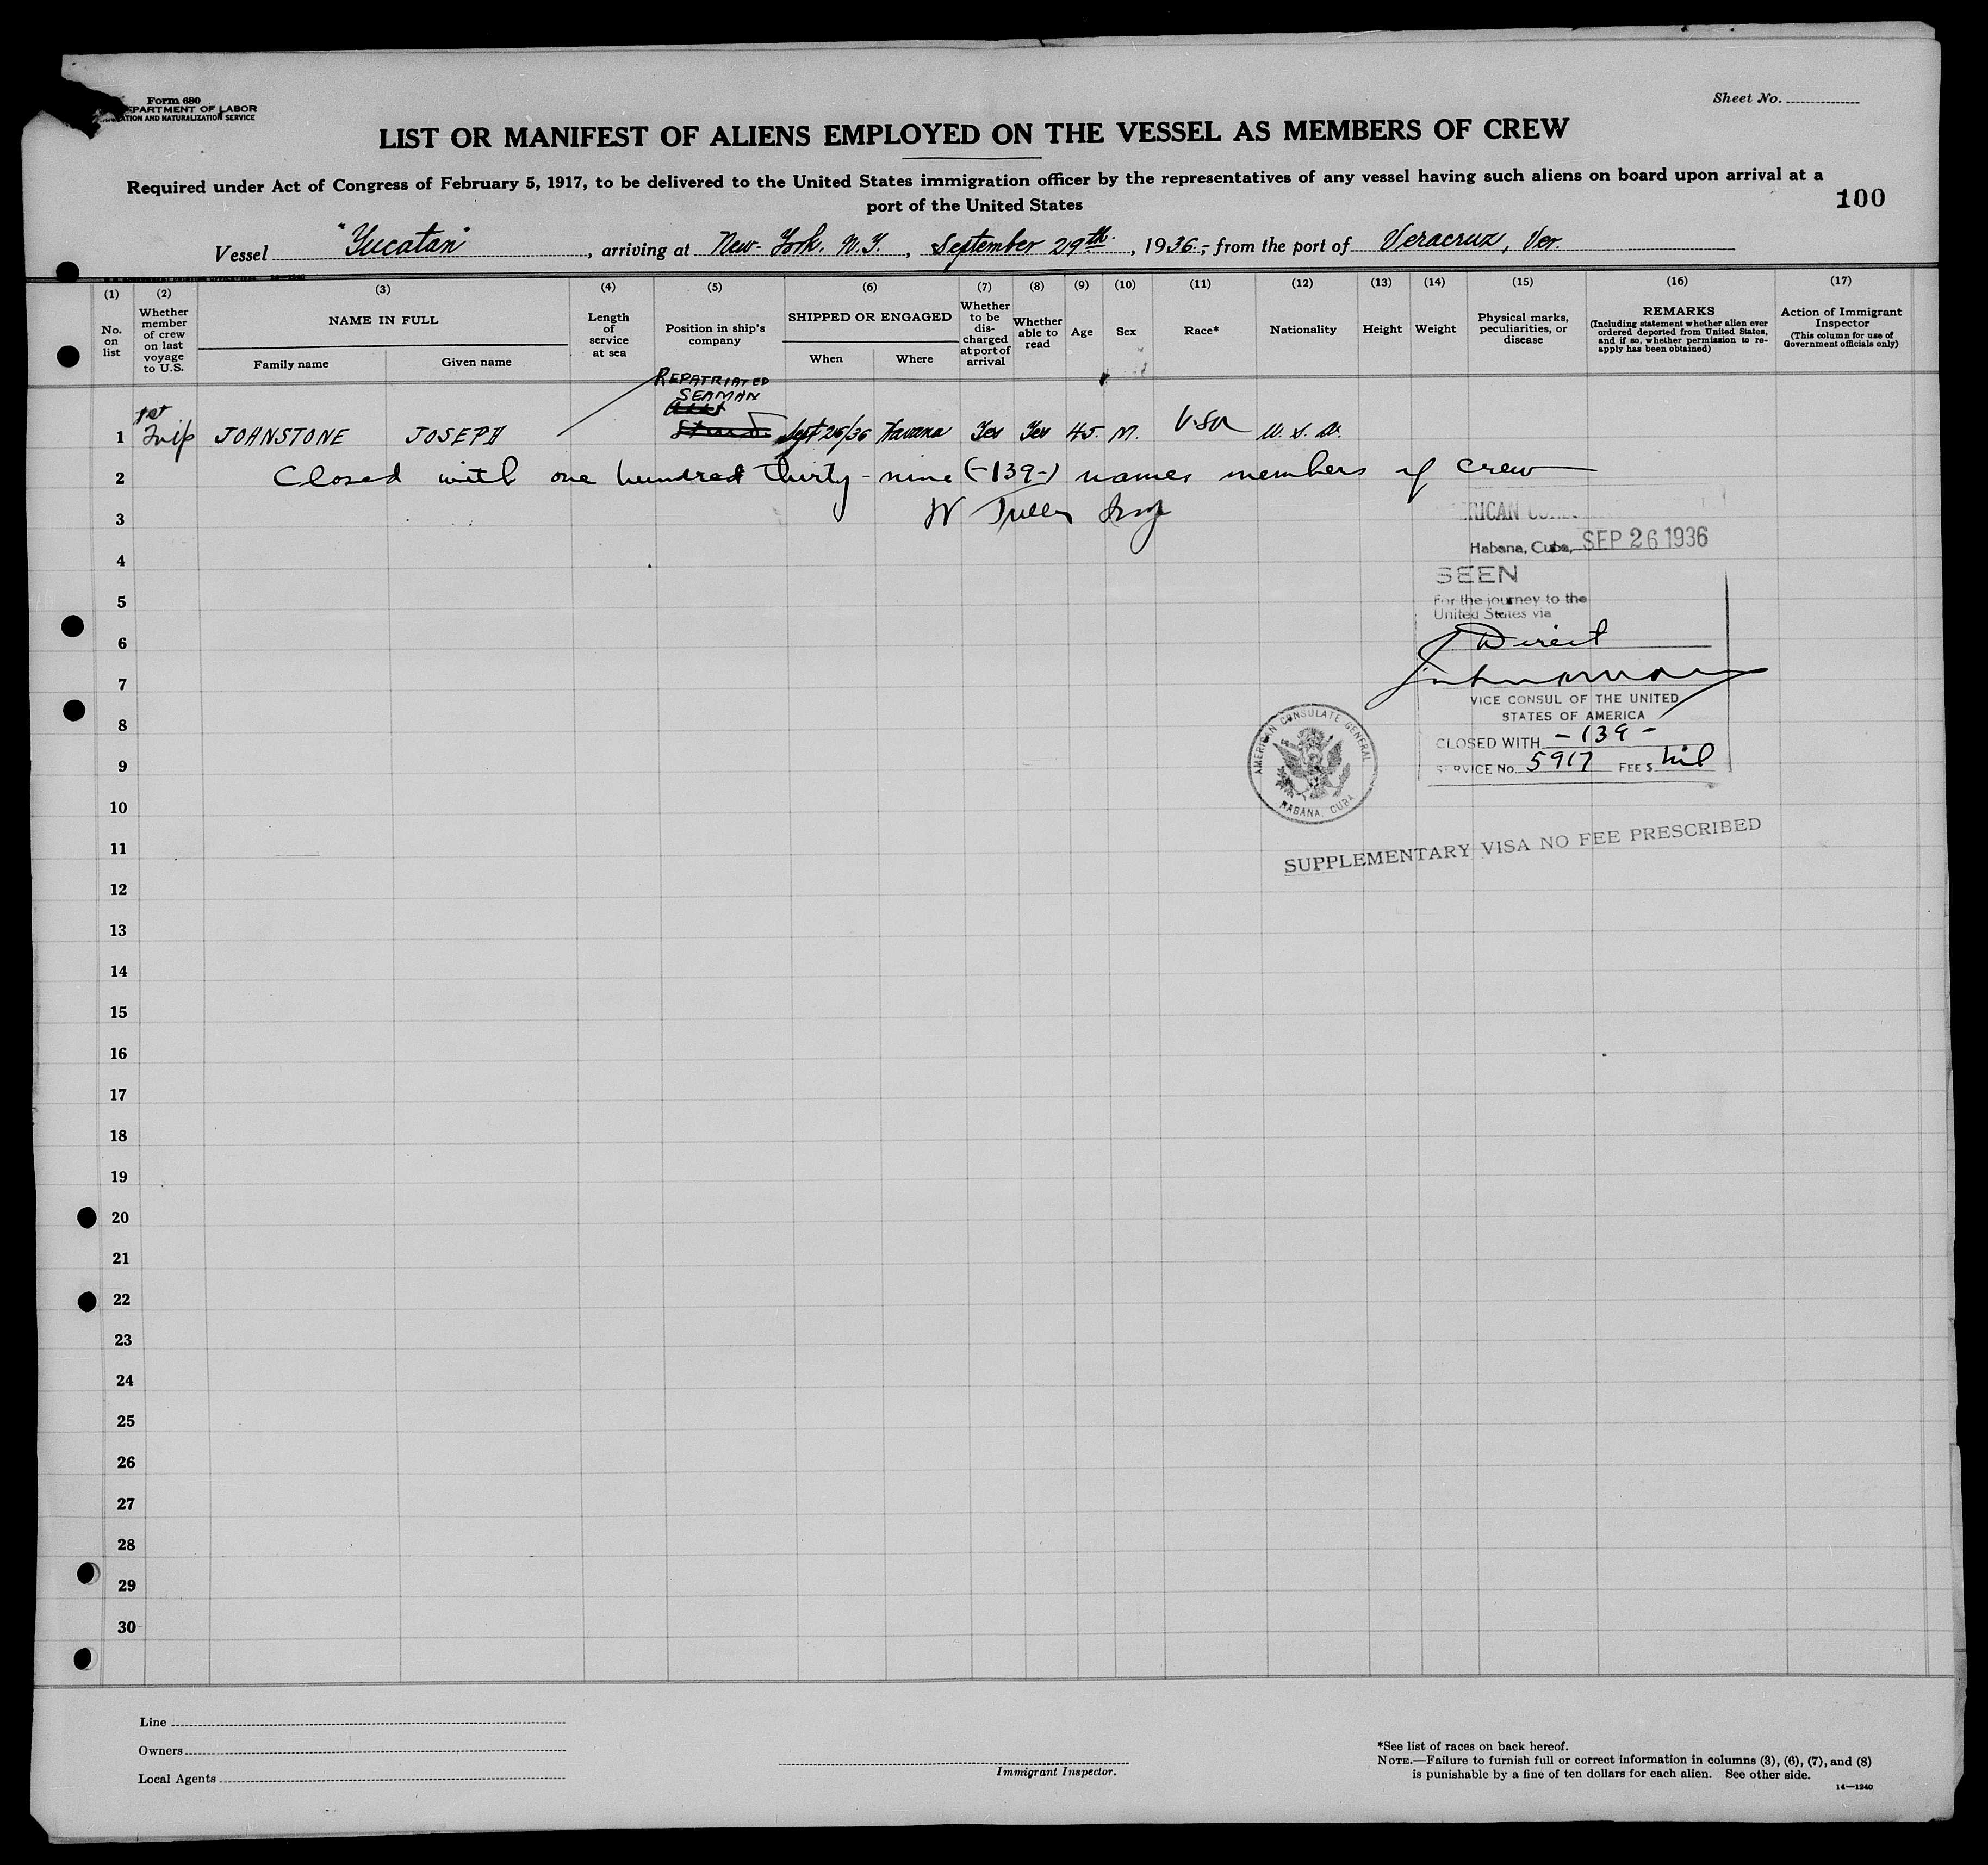 Form 680
DEPARTMENT OF LABOR
NATURALIZATION SERVICE
Sheet No.
LIST OR MANIFEST OF ALIENS EMPLOYED ON THE VESSEL AS MEMBERS OF CREW
Required under Act of Congress of February 5, 1917, to be delivered to the United States immigration officer by the representatives of any vessel having such aliens on board upon arrival at a
port of the United States
100
Vessel "Yucatan", arriving at New-York, N.Y., September 29th, 1936.-, from the port of Veracruz, Ver.
(1) No. on list
(2) Whether member of crew on last voyage to U.S.
(3) NAME IN FULL
Family name
Given name
(4) Length of service at sea
(5) Position in ship's company
(6) SHIPPED OR ENGAGED
When
Where
(7) Whether to be dis-charged at port of arrival
(8) Whether able to read
(9) Age
(10) Sex
(11) Race*
(12) Nationality
(13) Height
(14) Weight
(15) Physical marks, peculiarities, or disease
(16) REMARKS
(Including statement whether alien ever ordered deported from United States, and if so, whether permission to re-apply has been obtained)
(17) Action of Immigrant Inspector
(This column for use of Government officials only)
REPATRIATED
SEAMAN
1 1st Trip JOHNSTONE JOSEPH Sept 26/36 Havana Yes Yes 45. M. USA U. S. A.
2 Closed with one hundred thirty-nine (-139-) names members of crew
3
4
5
6
7
8
9
10
11
12
13
14
15
16
17
18
19
20
21
22
23
24
25
26
27
28
29
30
Habana, Cuba, SEP 26 1936
SEEN
For the journey to the
United States via
Direct
VICE CONSUL OF THE UNITED
STATES OF AMERICA
CLOSED WITH -139-
SERVICE No. 5917 FEE $ nil
AMERICAN CONSULATE GENERAL
HABANA, CUBA
SUPPLEMENTARY VISA NO FEE PRESCRIBED
Line
Owners
Local Agents
Immigrant Inspector.
*See list of races on back hereof.
NOTE.—Failure to furnish full or correct information in columns (3), (6), (7), and (8)
is punishable by a fine of ten dollars for each alien. See other side.
14—1240